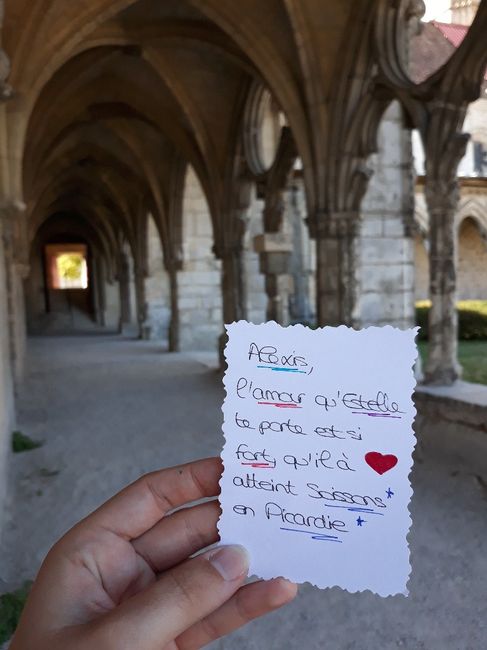 Alexis,
l'amour qu'Estelle
te porte est si
fort, qu'il à
atteint Soissons*
en Picardie *